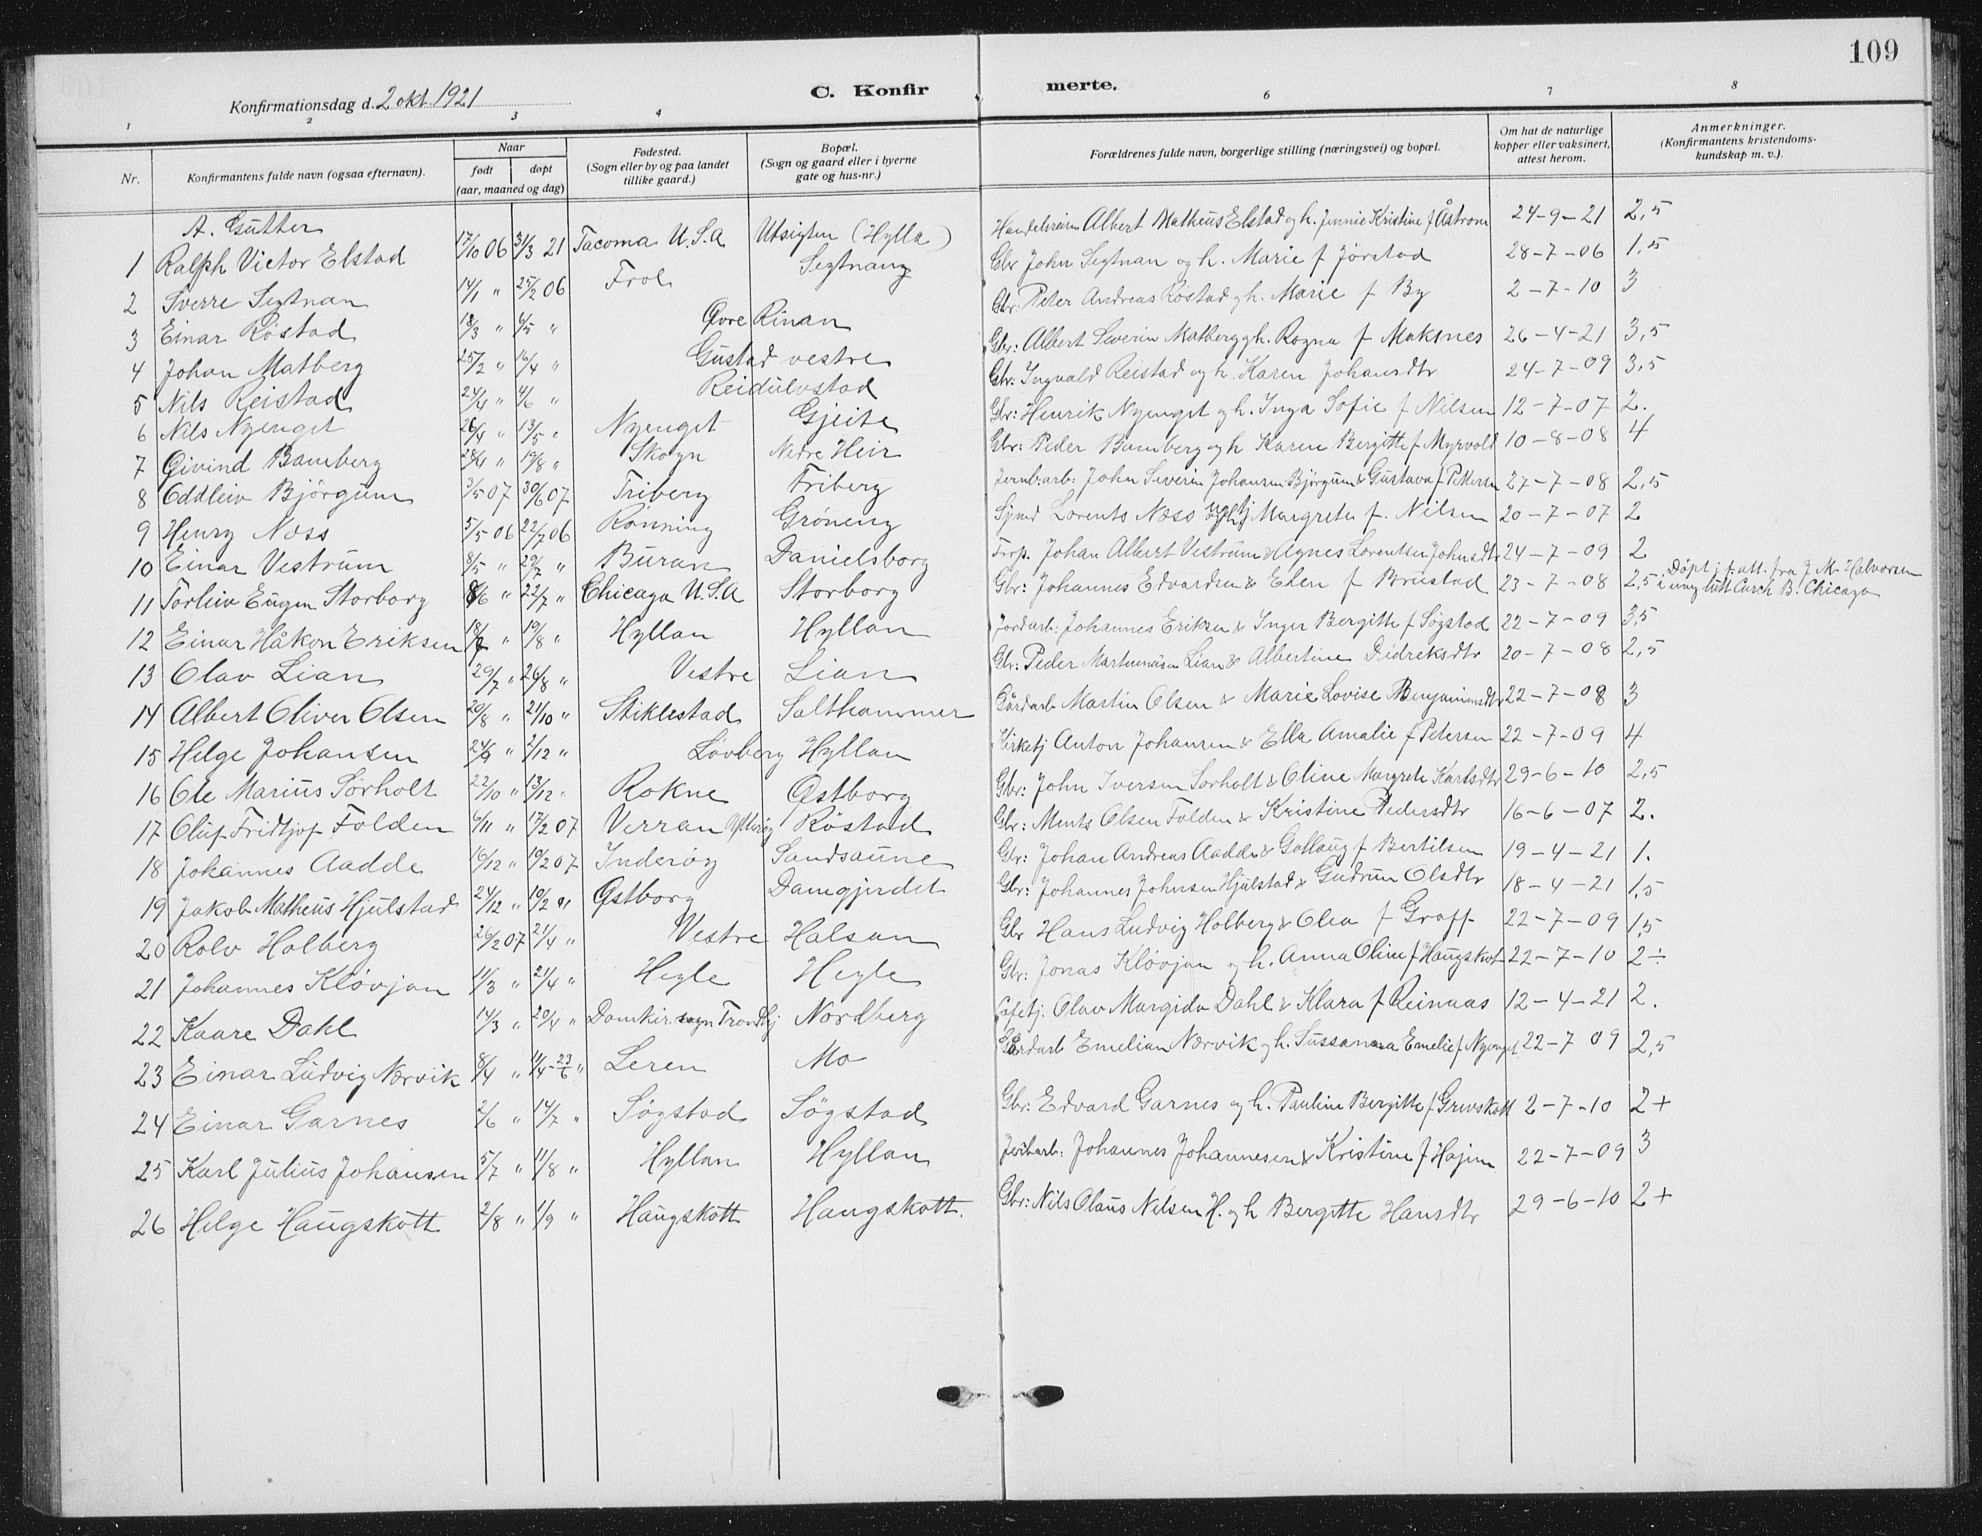 109
Konfirmationsdag d. 2 okt. 1921
C. Konfir merte.
1 2 3 4 6 7 8
Nr. Konfirmantens fulde navn (ogsaa efternavn). Naar født døpt (aar, maaned og dag) Fødested. (Sogn eller by og paa landet tillike gaard.) Bopæl. (Sogn og gaard eller i byerne gate og hus-nr.) Forældrenes fulde navn, borgerlige stilling (næringsvei) og bopæl. Om hat de naturlige kopper eller vaksinert, attest herom. Anmerkninger. (Konfirmantens kristendoms-kundskap m. v.).
A. Gutter
1 Ralph Victor Elstad 17/10 06 31/3 21 Tacoma U.S.A Utsigten (Hylla) Albert Matheus Elstad og h. Jennie Kristine f Åstrøm 24-9-21 2,5
2 Sverre Segtnan 14/1 " 25/2 06 Frol Segtnan Gbr John Segtnan og h. Marie f Jørstad 28-7-06 1,5
3 Einar Röstad 18/3 " 4/5 " Øvre Rinan Gbr: Peter Andreas Rostad og h. Marie f By 2-7-10 3
4 Johan Matberg 25/2 " 16/4 " Gustad vestre Gbr: Albert Severin Matberg og h. Ragna f Maksnes 26-4-21 3,5
5 Nils Reistad 24/4 " 4/6 " Reidulvstad Gbr: Ingvald Reistad og h. Karen Johansdtr 24-7-09 3,5
6 Nils Nyenget 26/4 " 13/5 " Nyenget Gjeite Gbr: Henrik Nyenget og h. Inga Sofie f Nilsen 12-7-07 2.
7 Øivind Bamberg 28/4 " 19/8 " Skogn Nedre Heir Gbr: Peder Bamberg og h Karen Bergitte f Myrvold 10-8-08 4
8 Oddleiv Björgum 3/5 07 30/6 07 Friberg Friberg Jernb.arb: John Severin Johansen Bjørgum & Gustava f Pettersen 27-7-08 2,5
9 Henry Næss 5/5 06 22/7 06 Rönning Gröneng Lorents Næss Margrete f. Nilsen 20-7-07 2
10 Einar Vestrum 8/5 " 29/7 " Buran Danielsborg Johan Albert Vestrum & Agnes Lorentsen Johnsdtr 24-7-09 2
11 Torleiv Eugen Storborg 8/6 " 22/7 " Chicago U.S.A Storborg Gbr: Johannes Edvardsen & Ellen f Brustad 23-7-08 2,5 Döpt att. fra J. M. Halvorsen Chicago
12 Einar Håkon Eriksen 18/7 " 19/8 " Hyllan Hyllan Jordarb: Johannes Eriksen & Inger Bergitte f Søgstad 22-7-09 3,5
13 Olav Lian 29/7 " 26/8 " Vestre Lian Gbr: Peder Martinusen Lian & Albertine Didreksdtr 20-7-08 2,5
14 Albert Oliver Olsen 20/8 " 21/10 " Stiklestad Salthammer Gårdarb Martin Olsen & Marie Lovise Benjaminsdtr 22-7-08 3
15 Helge Johansen 24/9 " 2/12 " Lövberg Hyllan Kirketj Anton Johansen & Ella Amalie f Petersen 22-7-09 4
16 Ole Marius Sörholt 22/10 " 13/12 " Rokne Østborg Gbr: John Iversen Sorholt & Oline Margrete Karlsdtr 29-6-10 2,5
17 Oluf Fridtjof Folden 6/11 " 17/2 07 Verran Ytterøy Röstad Gbr: Ments Olsen Folden & Kristine Pedersdtr 16-6-07 2.
18 Johannes Aadde 16/12 " 10/2 07 Inderøy Sandsaune Gbr: Johan Andreas Aadde & Gollaug f Bertilsen 19-4-21 1.
19 Jakob Matheus Hjulstad 24/12 " 10/2 " Østborg Damgjerdet Gbr: Johannes Johnsen Hjulstad & Gudrun Olsdtr 18-4-21 1,5
20 Rolv Holberg 26/2 07 21/4 " Vestre Halsan Gbr Hans Ludvig Holberg & Olea f Graff 22-7-09 1,5
21 Johannes Klövjan 11/3 " 21/4 " Hegle Hegle Gbr: Jonas Klövjan og h. Anna Oline f Haugskott 22-7-10 2÷
22 Kaare Dahl 14/3 " 20/4 " Domkir. sogn Trondhj Nordberg Olav Margido Dahl & Klara f Reinaas 12-4-21 2.
23 Einar Ludvig Nærvik 8/4 " 11/4-23/6 " Leren Mo Gårdarb Emelian Nærvik og h. Sussanna Emelie f Nyenget 22-7 09 2,5
24 Einar Garnes 2/6 " 14/7 " Søgstad Søgstad Gbr: Edvard Garnes og h. Pauline Bergitte f Grevskott 2-7-10 2+
25 Karl Julius Johansen 5/7 " 11/8 " Hyllan Hyllan Johannes Johannesen & Kristine f Hojem 22-7-09 3
26 Helge Haugskott 2/8 " 1/9 " Haugskott Haugskott. Gbr: Nils Olaus Nilsen H. og h Bergitte Hansdtr 29-6-10 2+